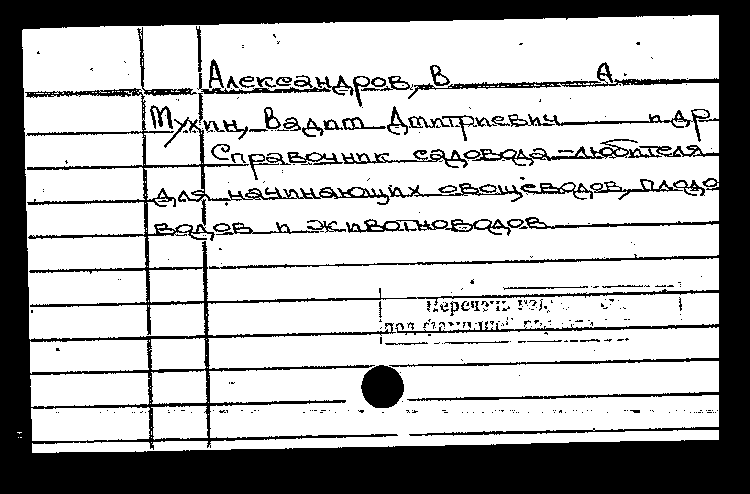 Александров, В А.
Мухин, Вадим Дмитриевич и др
Справочник садовода-любителя
для начинающих овощеводов, плодо
водов и животноводов
Перечень
под фамилией